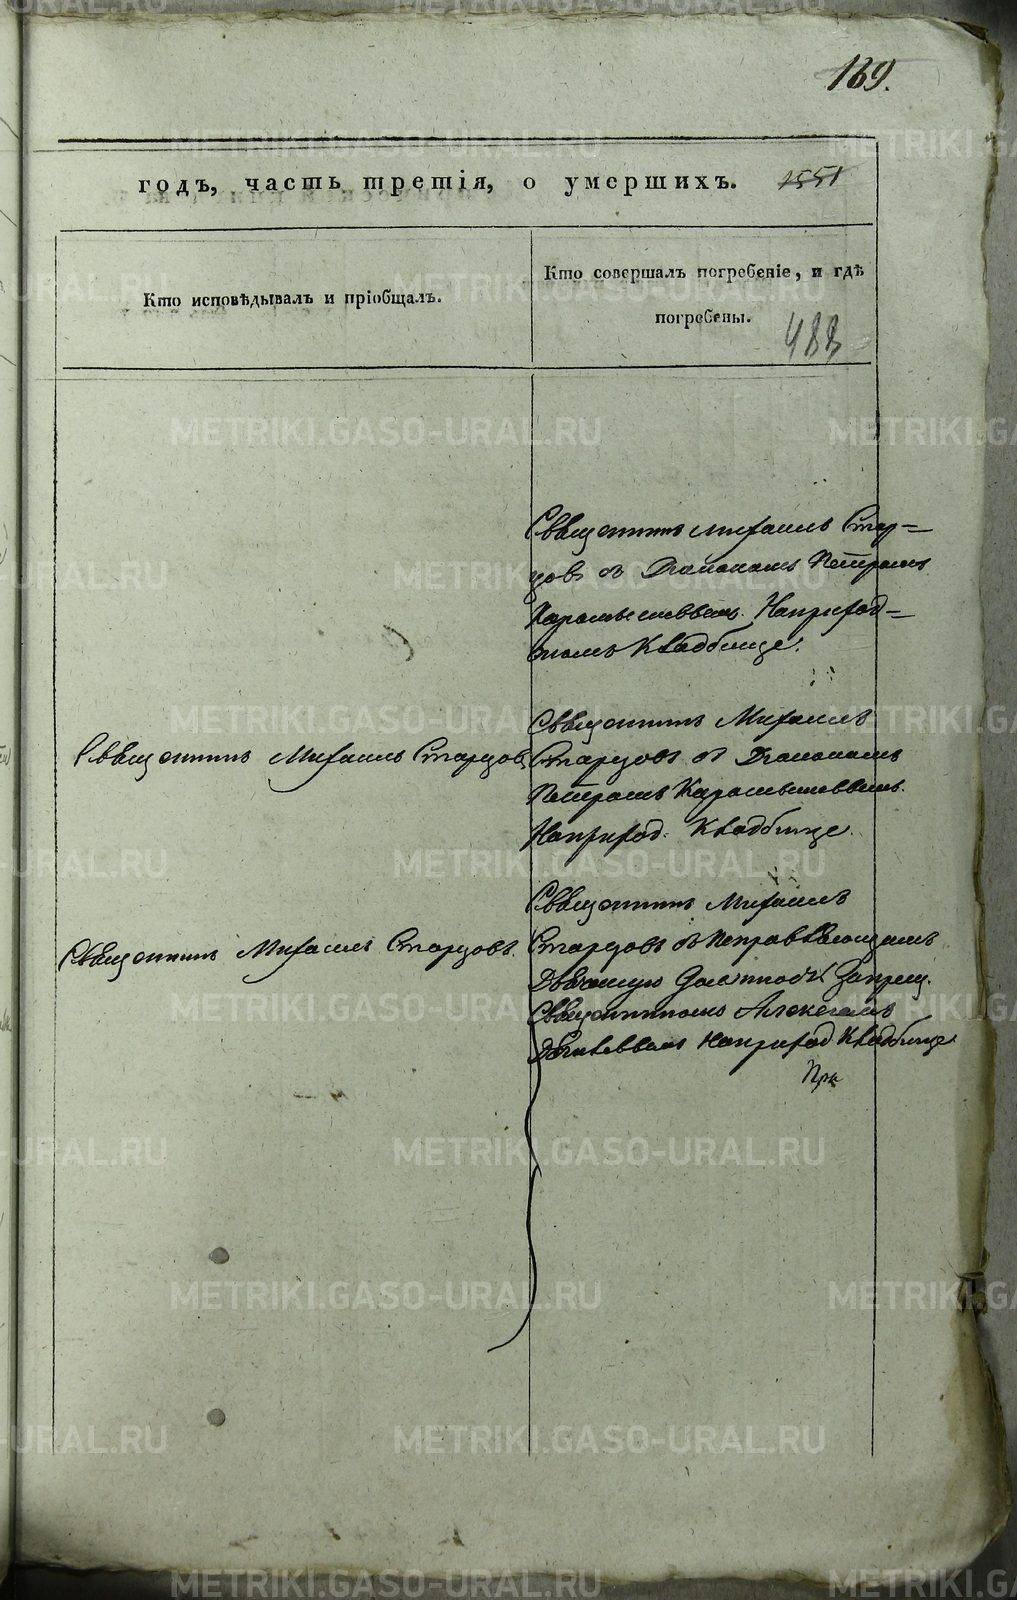 139.
годъ, часть третія, о умершихъ. 1551
Кто исповѣдывалъ и пріобщалъ.
Кто совершалъ погребеніе, и гдѣ
погребены.
488
Священникъ Михаилъ Стар=
цовъ съ Діакономъ Петромъ
Наприход=
скомъ Кладбище.
Священникъ Михаилъ Старцовъ
Священникъ Михаилъ
Старцовъ съ Діакономъ
Петромъ
Наприход. Кладбище.
Священникъ Михаилъ Старцовъ.
Священникъ Михаилъ
Старцовъ съ исправляющимъ
должность запрещ.
Священникомъ Алексѣемъ
Наприход Кладбище
METRIKI.GASO-URAL.RU